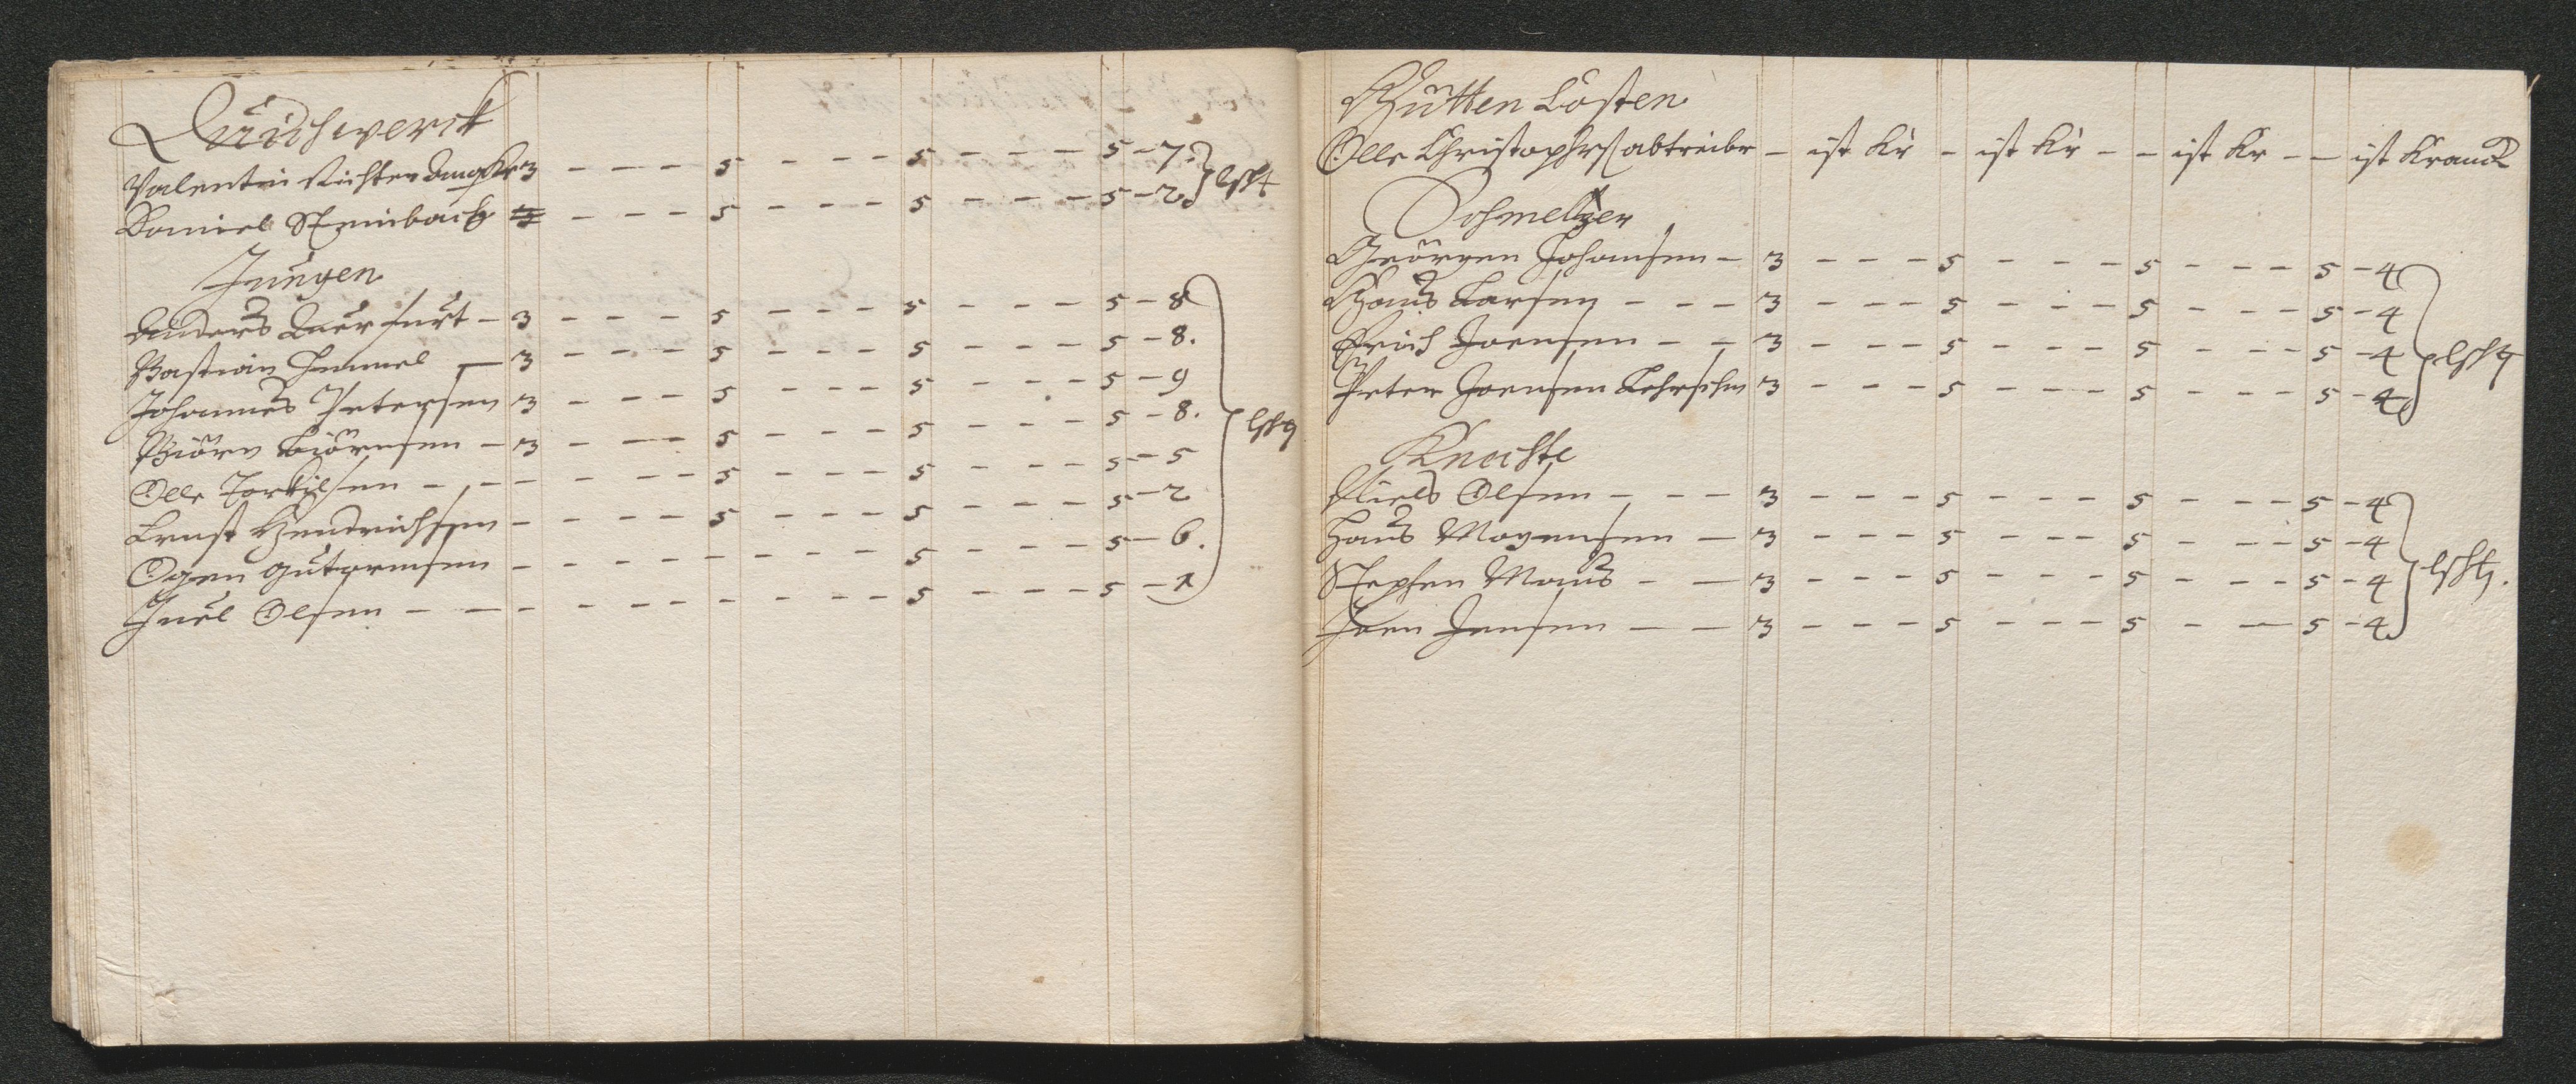 Puchwerck
Valentin Richter 3 - - - 5 - - - 5 - - - 5 - 7.
Daniel Steinbach - - - 5 - - - 5 - - - 5 - 2
Jungen
Anders Querfurt - 3 - - - 5 - - - 5 - - - 5 - 8
Bastian Himmel - 3 - - - 5 - - - 5 - - - 5 - 8.
Johannes Petersen 3 - - - 5 - - - 5 - - - 5 - 9
Biörn Biörnsen - 3 - - - 5 - - - 5 - - - 5 - 8.
Olle Torkilsen - - - - - 5 - - - 5 - - - 5 - 5
Ernst Hendrichsen - - - - 5 - - - 5 - - - 5 - 2
Ogen Gutormsen - - - - - - - - 5 - - - 5 - 6.
Juel Olsen - - - - - - - - - 5 - - - 5 - 1
Hütten Costen
Olle Christophers abtreiber - ist Kr - ist Kr - - ist Kr - - ist Kranck
Schmeltzer
Geörgen Johansen - 3 - - - 5 - - - 5 - - - 5 - 4
Hans Larsen - - - 3 - - - 5 - - - 5 - - - 5 - 4
Erich Joensen - - 3 - - - 5 - - - 5 - - - 5 - 4
Peter Joensen 3 - - - 5 - - - 5 - - - 5 - 4
Knechte
Niels Olsen - - - 3 - - - 5 - - - 5 - - - 5 - 4
Hans Mogensen - 3 - - - 5 - - - 5 - - - 5 - 4
Stephen Mons - - 3 - - - 5 - - - 5 - - - 5 - 4
Joen Jensen - - 3 - - - 5 - - - 5 - - 5 - 4